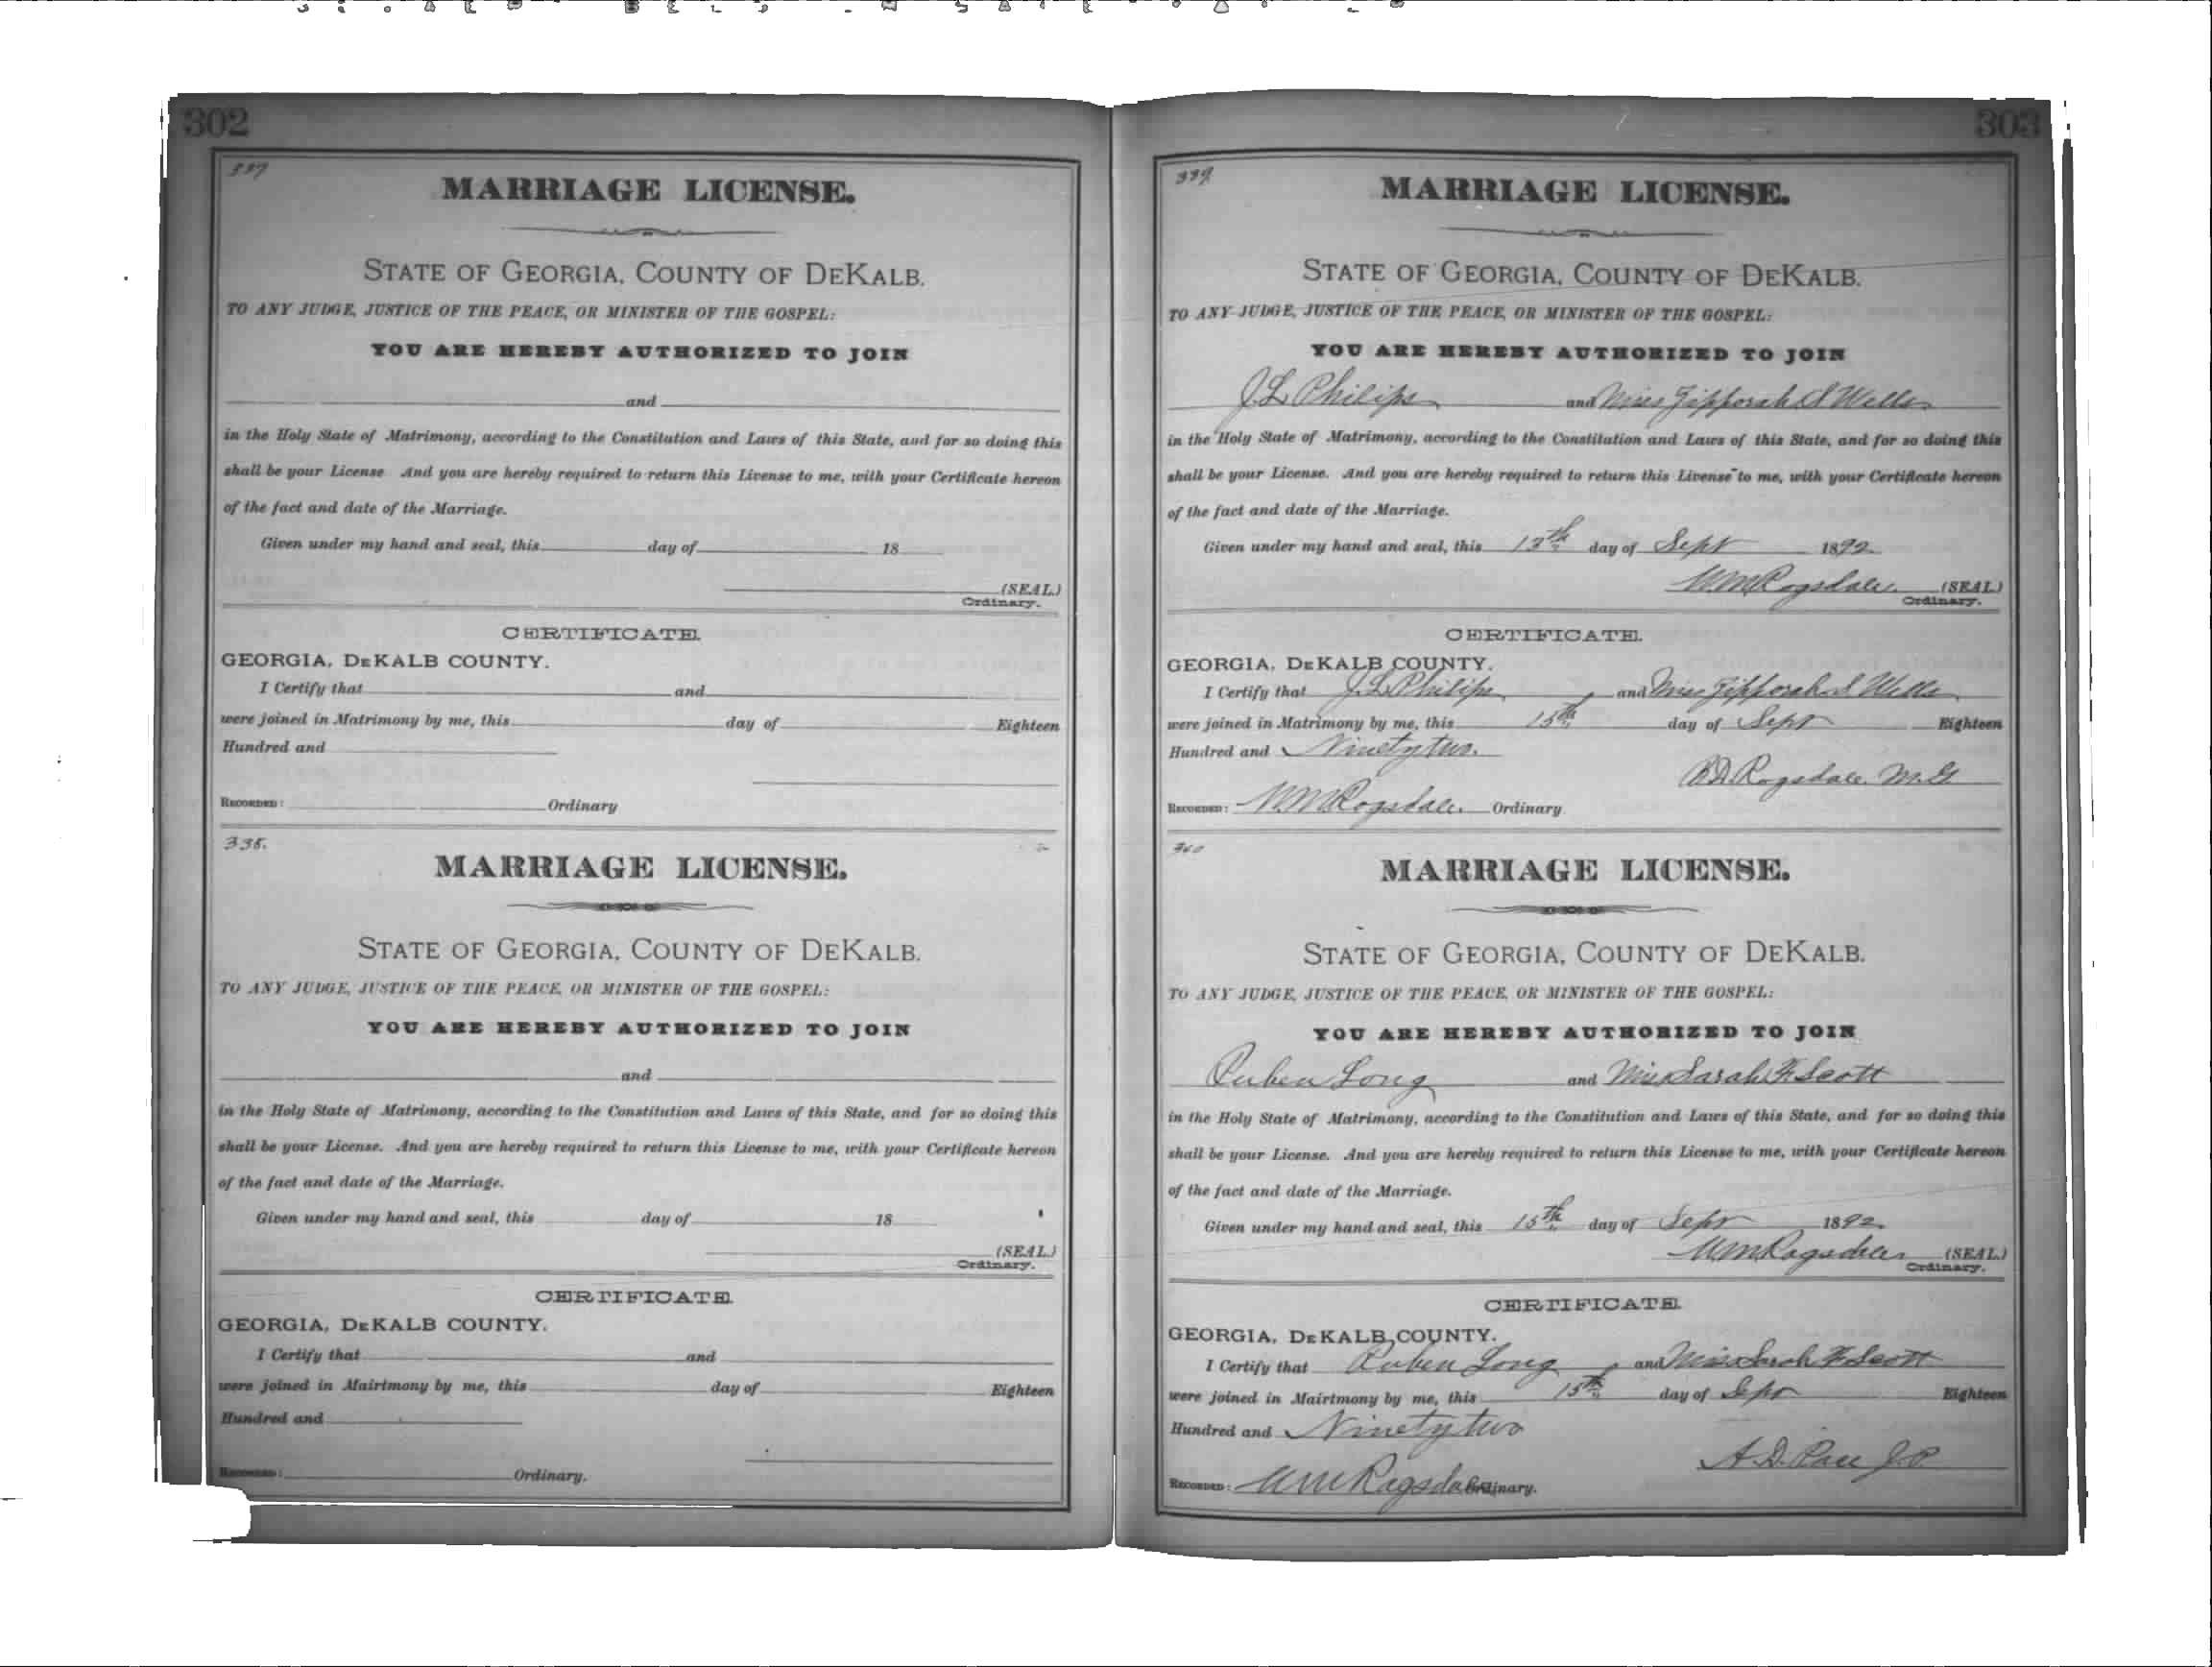 302
337
MARRIAGE LICENSE.
STATE OF GEORGIA, COUNTY OF DEKALB.
TO ANY JUDGE, JUSTICE OF THE PEACE, OR MINISTER OF THE GOSPEL:
YOU ARE HEREBY AUTHORIZED TO JOIN
and
in the Holy State of Matrimony, according to the Constitution and Laws of this State, and for so doing this
shall be your License And you are hereby required to return this License to me, with your Certificate hereon
of the fact and date of the Marriage.
Given under my hand and seal, this day of 18
(SEAL)
Ordinary.
CERTIFICATE.
GEORGIA, DEKALB COUNTY.
I Certify that and
were joined in Matrimony by me, this day of Eighteen
Hundred and
RECORDED: Ordinary
338.
MARRIAGE LICENSE.
STATE OF GEORGIA, COUNTY OF DEKALB.
TO ANY JUDGE, JUSTICE OF THE PEACE, OR MINISTER OF THE GOSPEL:
YOU ARE HEREBY AUTHORIZED TO JOIN
and
in the Holy State of Matrimony, according to the Constitution and Laws of this State, and for so doing this
shall be your License. And you are hereby required to return this License to me, with your Certificate hereon
of the fact and date of the Marriage.
Given under my hand and seal, this day of 18
(SEAL)
Ordinary.
CERTIFICATE.
GEORGIA, DEKALB COUNTY.
I Certify that and
were joined in Mairtmony by me, this day of Eighteen
Hundred and
RECORDED: Ordinary.
303
339.
MARRIAGE LICENSE.
STATE OF GEORGIA, COUNTY OF DEKALB.
TO ANY JUDGE, JUSTICE OF THE PEACE, OR MINISTER OF THE GOSPEL:
YOU ARE HEREBY AUTHORIZED TO JOIN
J. L. Philips and Miss Zipporah S Wells
in the Holy State of Matrimony, according to the Constitution and Laws of this State, and for so doing this
shall be your License. And you are hereby required to return this License to me, with your Certificate hereon
of the fact and date of the Marriage.
Given under my hand and seal, this 13th day of Sept 1892.
W M Ragsdale. (SEAL)
Ordinary.
CERTIFICATE.
GEORGIA, DEKALB COUNTY.
I Certify that J. L. Philips and Miss Zipporah S Wells
were joined in Matrimony by me, this 15th day of Sept Eighteen
Hundred and Ninety two.
Ragsdale. M.G
RECORDED: W M Ragsdale. Ordinary
340
MARRIAGE LICENSE.
STATE OF GEORGIA, COUNTY OF DEKALB.
TO ANY JUDGE, JUSTICE OF THE PEACE, OR MINISTER OF THE GOSPEL:
YOU ARE HEREBY AUTHORIZED TO JOIN
Ruben Long and Miss Sarah F. Scott
in the Holy State of Matrimony, according to the Constitution and Laws of this State, and for so doing this
shall be your License. And you are hereby required to return this License to me, with your Certificate hereon
of the fact and date of the Marriage.
Given under my hand and seal, this 15th day of Sept 1892.
W M Ragsdale (SEAL)
Ordinary.
CERTIFICATE.
GEORGIA, DEKALB COUNTY.
I Certify that Ruben Long and Miss Sarah F Scott
were joined in Mairtmony by me, this 15th day of Sept Eighteen
Hundred and Ninety two
A. D. J.P.
RECORDED: W M Ragsdale Ordinary.